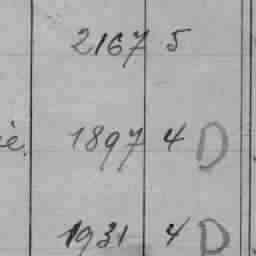 2167 5
ie 1897 4 D
1931 4 D